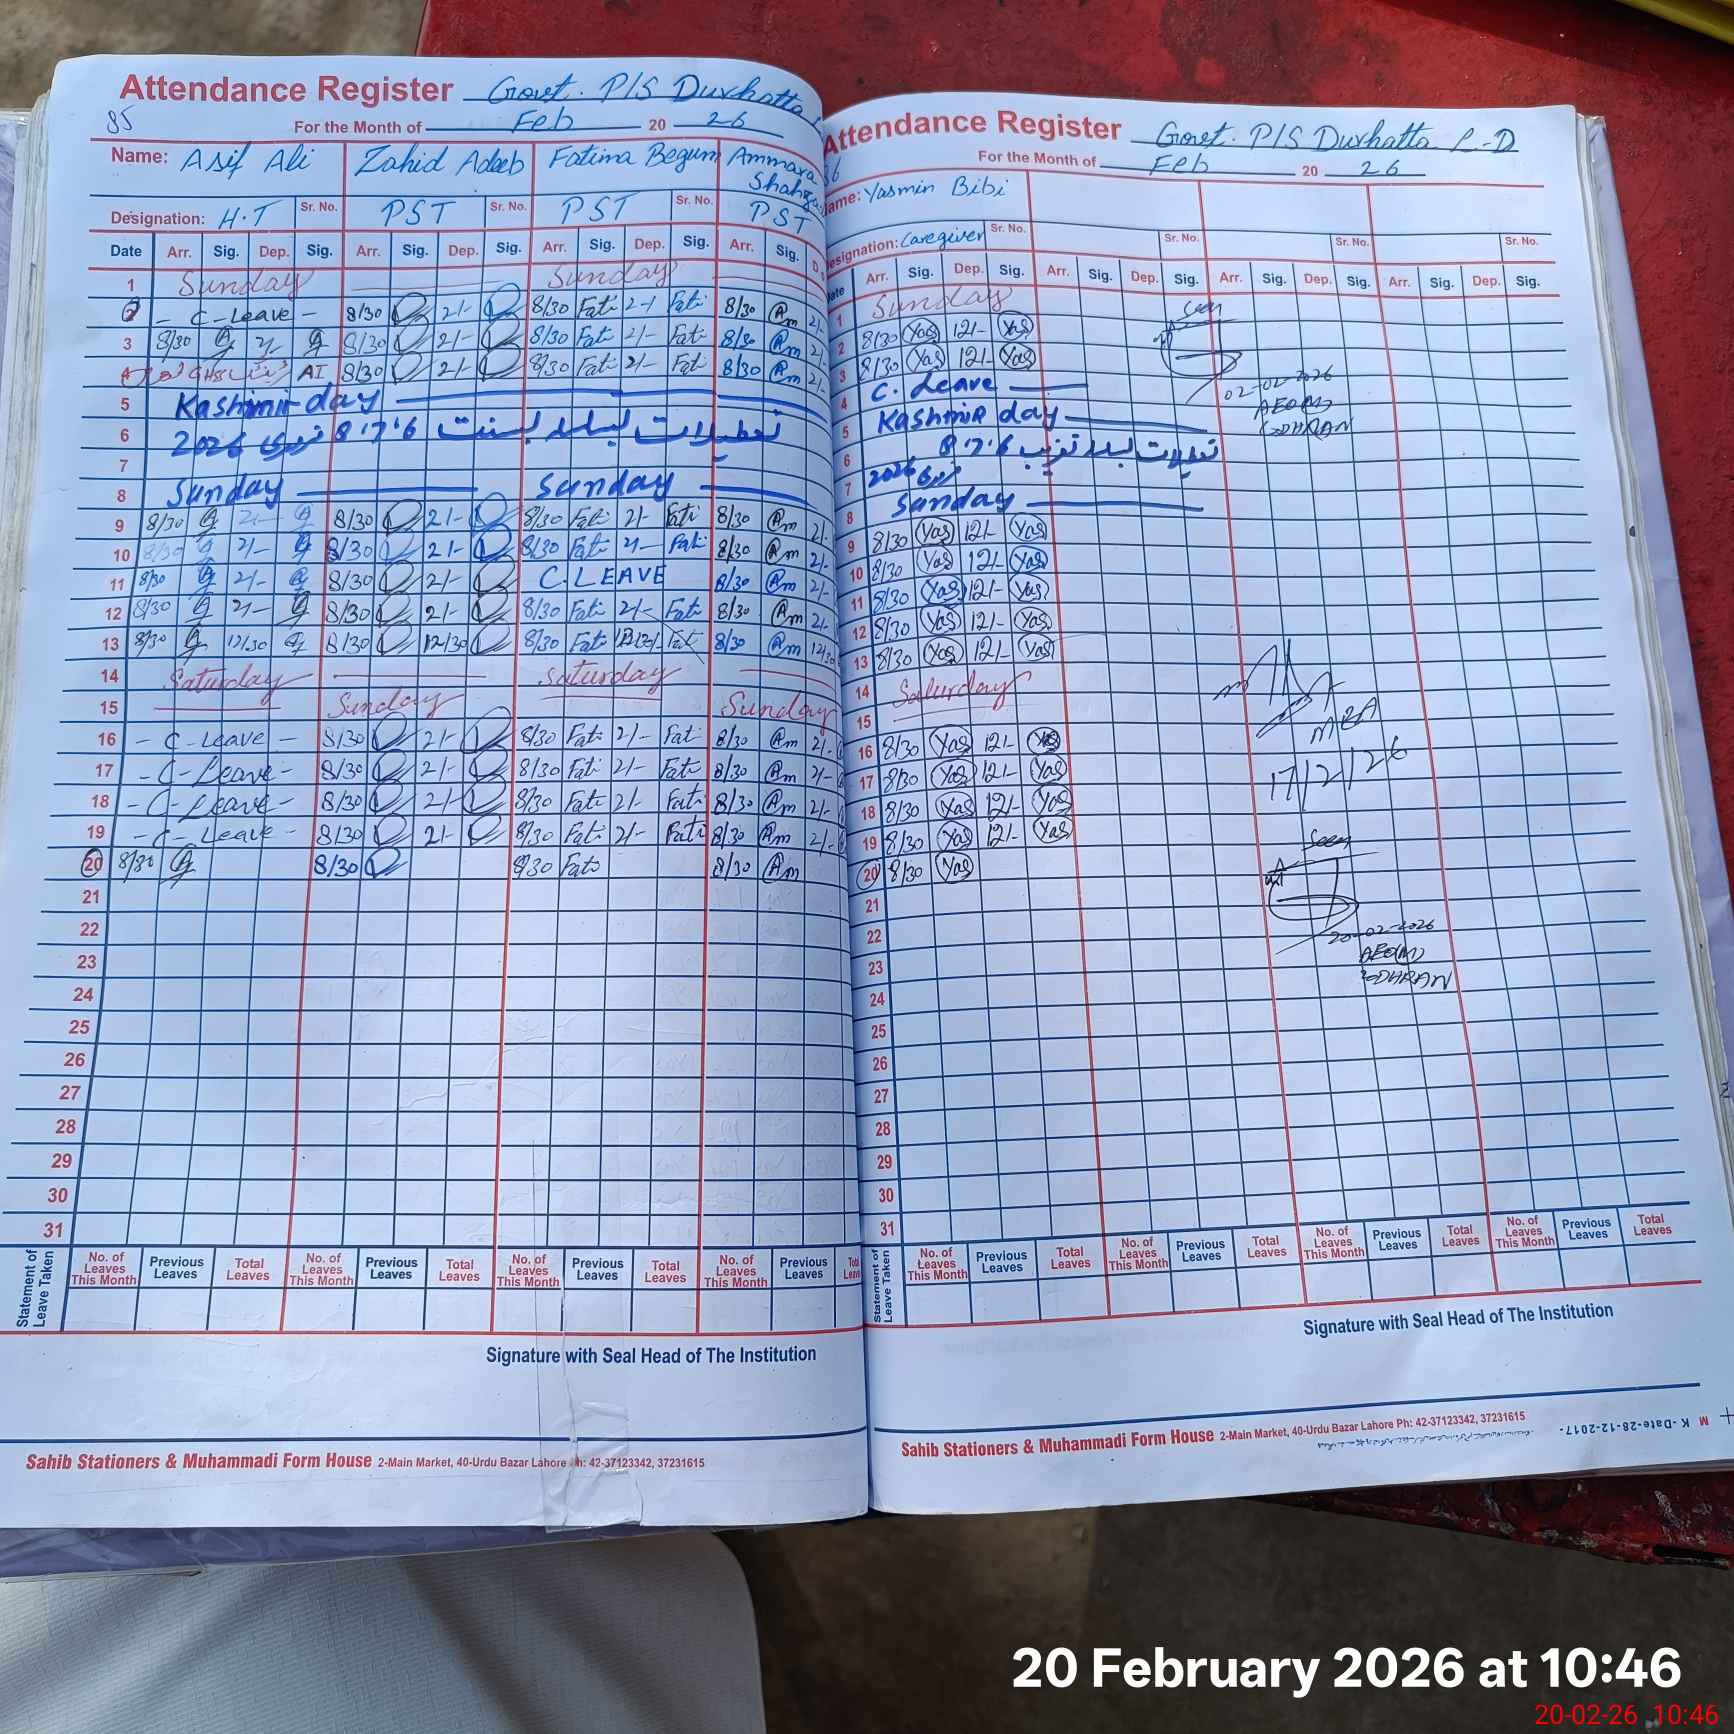 Attendance Register Govt. P/S Durhatta
85
For the Month of Feb 20 26
Name: Asif Ali Zahid Adeeb Fatima Begum Ammara
Designation: H.T Sr. No. PST Sr. No. PST Sr. No. PST
Date Arr. Sig. Dep. Sig. Arr. Sig. Dep. Sig. Arr. Sig. Dep. Sig. Arr. Sig.
1 Sunday Sunday
2 - C-Leave - 8/30 2/- 8/30 Fati 2-1 Fati 8/30 Am 2/-
3 8/30 2/- 8/30 2/- 8/30 Fati 2/- Fati 8/30 Am 2/-
4 GHSS AI 8/30 2/- 8/30 Fati 2/- Fati 8/30 Am 2/-
5 Kashmir day
6 تعطیلات بسلسلہ بسنت ۶،۷،۸ فروری 2026
7
8 Sunday Sunday
9 8/30 2/- 8/30 2/- 8/30 Fati 2/- Fati 8/30 Am 2/-
10 8/30 2/- 8/30 2/- 8/30 Fati 2/- Fati 8/30 Am 2/-
11 8/30 2/- 8/30 2/- C.LEAVE 8/30 Am 2/-
12 8/30 2/- 8/30 2/- 8/30 Fati 2/- Fati 8/30 Am 2/-
13 8/30 12/30 8/30 12/30 8/30 Fati 12/30 Fati 8/30 Am 12/30
14 Saturday Saturday
15 Sunday Sunday
16 - C-Leave - 8/30 2/- 8/30 Fati 2/- Fati 8/30 Am 2/-
17 - C-Leave - 8/30 2/- 8/30 Fati 2/- Fati 8/30 Am 2/-
18 - C-Leave - 8/30 2/- 8/30 Fati 2/- Fati 8/30 Am 2/-
19 - C-Leave - 8/30 2/- 8/30 Fati 2/- Fati 8/30 Am 2/-
20 8/30 8/30 8/30 Fati 8/30 Am
21
22
23
24
25
26
27
28
29
30
31
Statement of Leave Taken No. of Leaves This Month Previous Leaves Total Leaves No. of Leaves This Month Previous Leaves Total Leaves No. of Leaves This Month Previous Leaves Total Leaves No. of Leaves This Month Previous Leaves
Signature with Seal Head of The Institution
Sahib Stationers & Muhammadi Form House 2-Main Market, 40-Urdu Bazar Lahore Ph: 42-37123342, 37231615
Attendance Register Govt. P/S Durhatta L-D
For the Month of Feb 20 26
Name: Yasmin Bibi
Designation: Caregiver Sr. No. Sr. No. Sr. No. Sr. No.
Date Arr. Sig. Dep. Sig. Arr. Sig. Dep. Sig. Arr. Sig. Dep. Sig. Arr. Sig. Dep. Sig.
1 Sunday
2 8/30 Yas 12/- Yas
3 8/30 Yas 12/- Yas
4 C. Leave
5 Kashmir day
6 تعطیلات بسلسلہ ۶،۷،۸
7 فروری 2026
8 Sunday
9 8/30 Yas 12/- Yas
10 8/30 Yas 12/- Yas
11 8/30 Yas 12/- Yas
12 8/30 Yas 12/- Yas
13 8/30 Yas 12/- Yas
14 Saturday
15
16 8/30 Yas 12/- Yas
17 8/30 Yas 12/- Yas
18 8/30 Yas 12/- Yas
19 8/30 Yas 12/- Yas
20 8/30 Yas
21
22
23
24
25
26
27
28
29
30
31
Seen
02-02-2026
AEO(M)
LODHRAN
MEA
17/2/26
Seen
20-02-2026
AEO(M)
LODHRAN
Statement of Leave Taken No. of Leaves This Month Previous Leaves Total Leaves No. of Leaves This Month Previous Leaves Total Leaves No. of Leaves This Month Previous Leaves Total Leaves No. of Leaves This Month Previous Leaves Total Leaves
Signature with Seal Head of The Institution
Sahib Stationers & Muhammadi Form House 2-Main Market, 40-Urdu Bazar Lahore Ph: 42-37123342, 37231615
M K -Date-28-12-2017-
20 February 2026 at 10:46
20-02-26 10:46